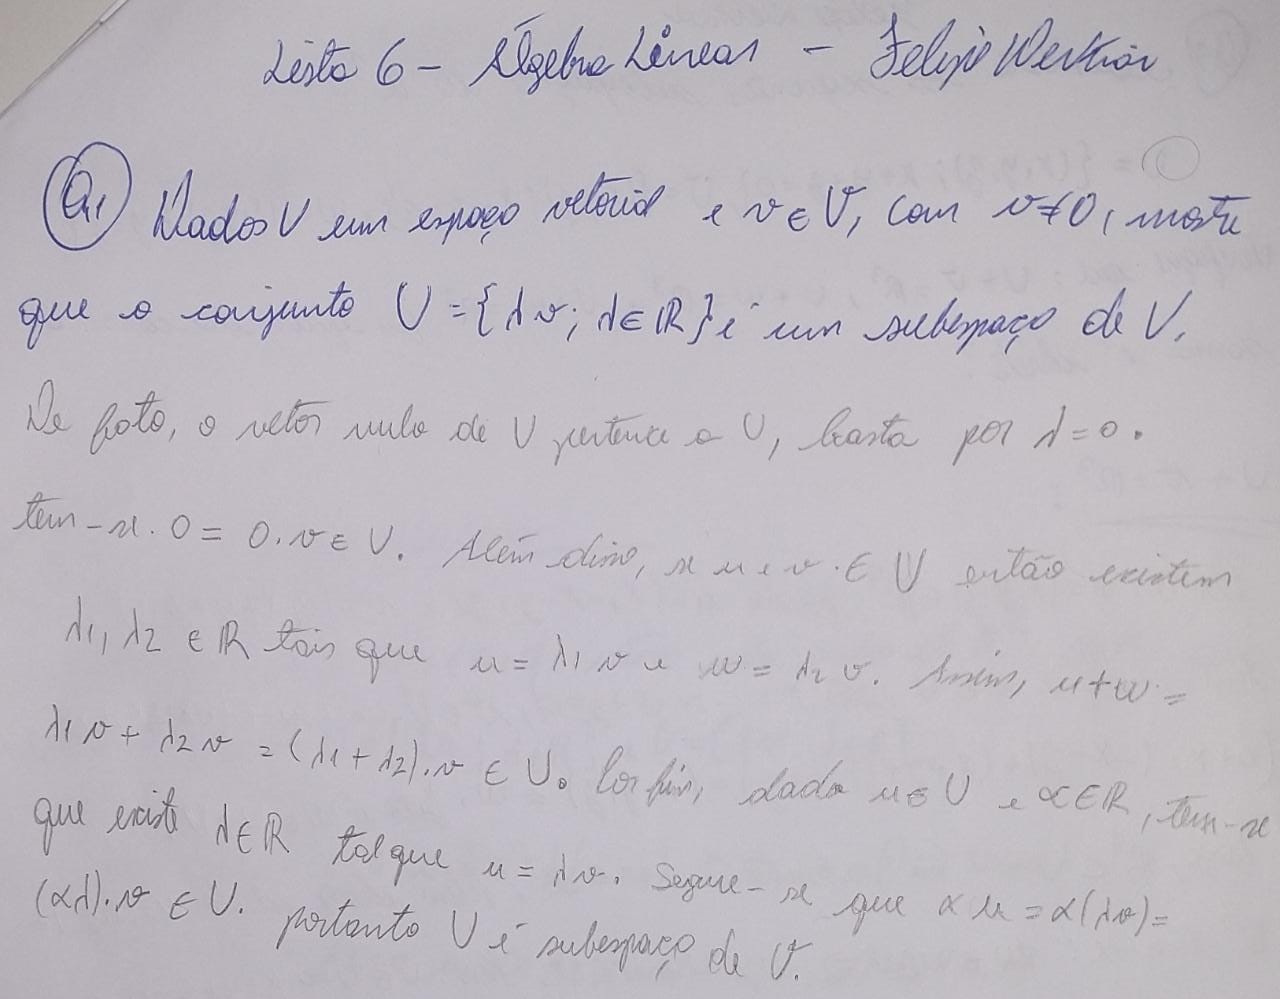 Lista 6 - Álgebra Linear - Felipe
Q1 Dados V um espaço vetorial e v ∈ V, com v ≠ 0, mostre
que o conjunto U = {λv; λ ∈ ℝ} é um subespaço de V.
De fato, o vetor nulo de V pertence a U, basta por λ = 0.
tem-se. 0 = 0.v ∈ U. Além disso, se u e v ∈ U então existem
λ1, λ2 ∈ ℝ tais que u = λ1 v e w = λ2 v. Assim, u + w =
λ1 v + λ2 v = (λ1 + λ2).v ∈ U. Por fim, dado u ∈ U e α ∈ ℝ, tem-se
que existe λ ∈ ℝ tal que u = λv. Segue-se que αu = α(λv) =
(αλ).v ∈ U. portanto U é subespaço de V.